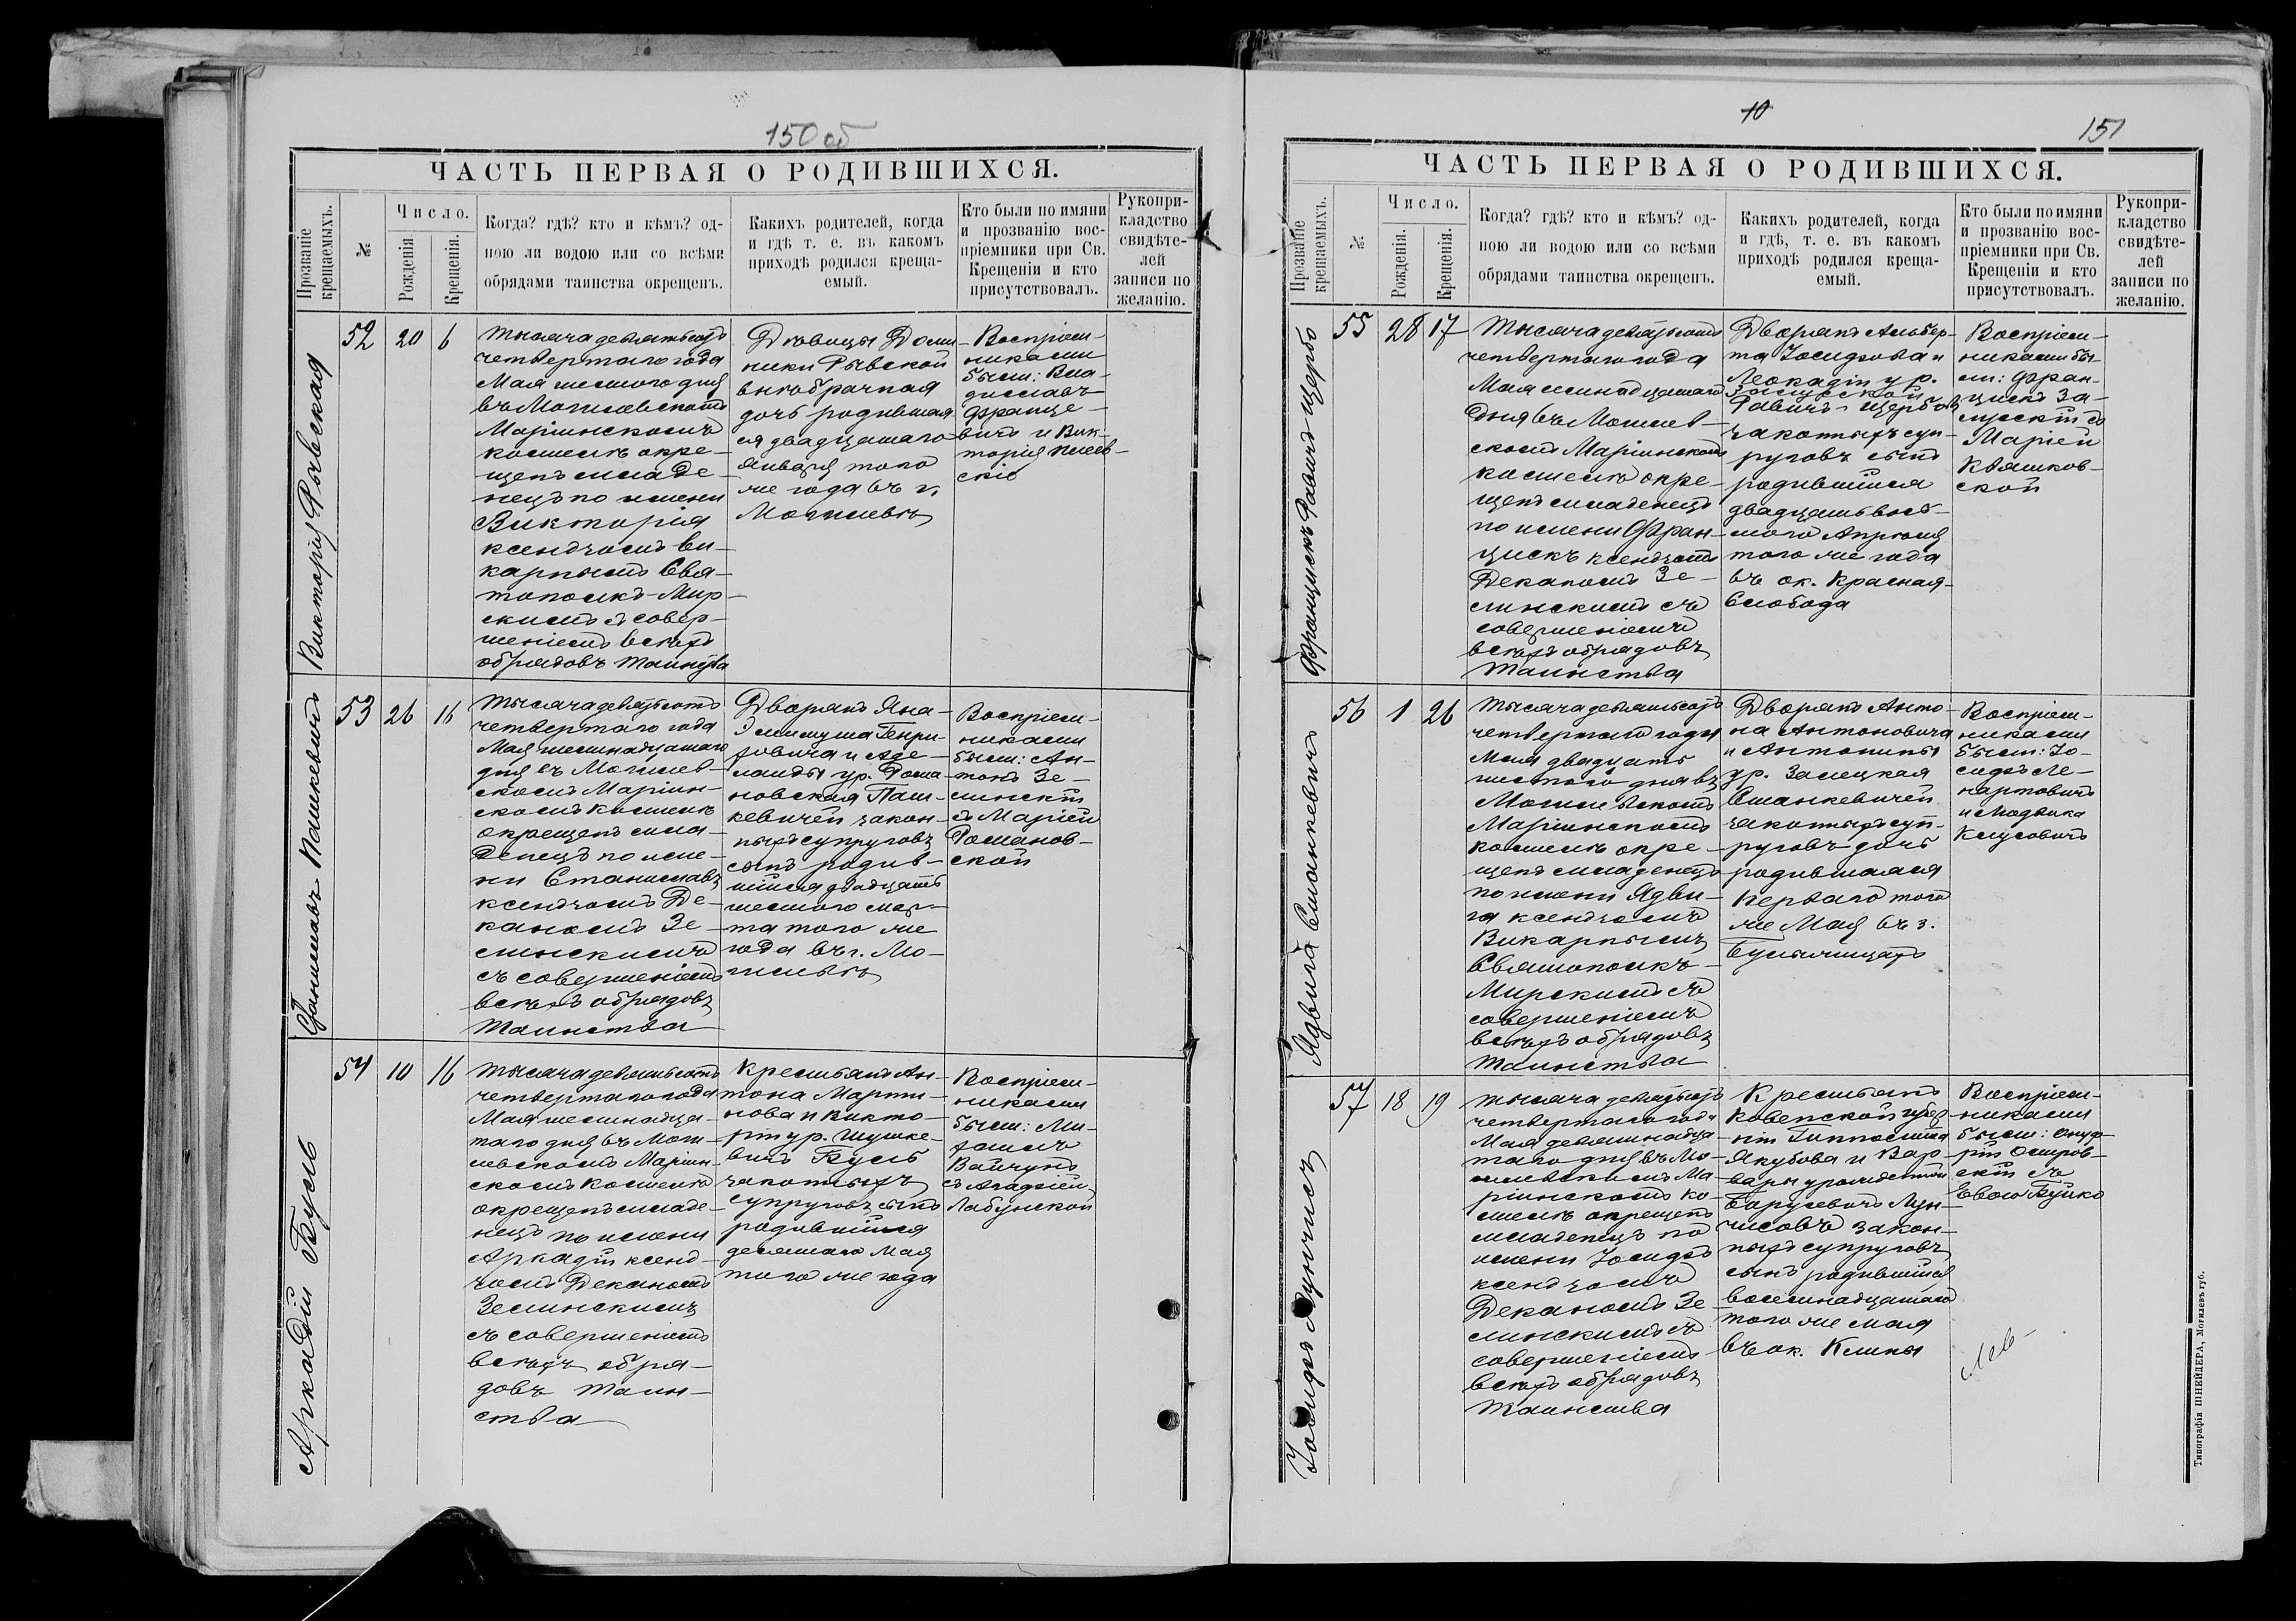 150 об
ЧАСТЬ ПЕРВАЯ О РОДИВШИХСЯ.
Прозваніе крещаемыхъ.
№
Число.
Рожденія.
Крещенія.
Когда? гдѣ? кто и кѣмъ? од-
ною ли водою или со всѣми
обрядами таинства окрещенъ.
Какихъ родителей, когда
и гдѣ т. е. въ какомъ
приходѣ родился креща-
емый.
Кто были по имяни
и прозванію вос-
пріемники при Св.
Крещеніи и кто
присутствовалъ.
Рукопри-
кладство
свидѣте-
лей
записи по
желанію.
Викторія Рывская
52
20
6
Тысяча девятьсотъ
четвертаго года
Мая шестого дня
въ Могилевскомъ
Маріинскомъ
костелѣ окре-
щенъ младе-
нецъ по имени
Викторія
ксендзомъ ви-
карнымъ Свя-
тополкъ-Мир-
скимъ съ совер-
шеніемъ всѣхъ
обрядовъ Таинства
Дѣвицы Доми-
ники Рывской
внѣбрачная
дочь родившая
ся двадцатаго
Января того
же года въ г.
Могилевѣ
Воспріем-
никами
были: Вла-
диславъ
Францке-
вичъ и Вик-
торія Клев-
скіе
Станиславъ Пашкевичъ
53
26
16
Тысяча девятьсотъ
четвертаго года
Мая шестнадцатаго
дня въ Могилев-
скомъ Маріин-
скомъ костелѣ
окрещенъ мла-
денецъ по име-
ни Станиславъ
ксендзомъ Де-
каномъ Зе-
линскимъ
съ совершеніемъ
всѣхъ обрядовъ
Таинства
Дворянъ Яна-
Генри-
ховича и Аде-
лаиды ур. Рома-
новская Паш-
кевичей закон-
ныхъ супруговъ
сынъ родив-
шійся двадцать
шестого мар-
та того же
года въ г. Мо-
гилевѣ
Воспріем-
никами
были: Ан-
тонъ Зе-
линскій
съ Маріей
Романов-
ской
Аркадій Буль
54
10
16
Тысяча девятьсотъ
четвертаго года
Мая шестнадца-
таго дня въ Моги-
левскомъ Маріин-
скомъ костелѣ
окрещенъ младе-
нецъ по имени
Аркадій ксенд-
зомъ Деканомъ
Зелинскимъ
съ совершеніемъ
всѣхъ обря-
довъ Таин-
ства
Крестьянъ Ан-
тона Марти-
нова и Викто-
ріи ур. Шушке-
вичъ Буль
законныхъ
супруговъ сынъ
родившійся
десятаго Мая
того же года
Воспріем-
никами
были: Ми-
хаилъ
Войчунъ
съ Агафіей
Лабунской
10
151
ЧАСТЬ ПЕРВАЯ О РОДИВШИХСЯ.
Прозваніе крещаемыхъ.
№
Число.
Рожденія.
Крещенія.
Когда? гдѣ? кто и кѣмъ? од-
ною ли водою или со всѣми
обрядами таинства окрещенъ.
Какихъ родителей, когда
и гдѣ, т. е. въ какомъ
приходѣ родился креща-
емый.
Кто были по имяни
и прозванію вос-
пріемники при Св.
Крещеніи и кто
присутствовалъ.
Рукопри-
кладство
свидѣте-
лей
записи по
желанію.
Францискъ Равичъ-Щербо
55
28
17
Тысяча девятьсотъ
четвертаго года
Мая семнадцатаго
дня въ Могилев-
скомъ Маріинскомъ
костелѣ окре-
щенъ младенецъ
по имени Фран-
цискъ ксендзомъ
Деканомъ Зе-
линскимъ съ
совершеніемъ
всѣхъ обрядовъ
Таинства
Дворянъ Альбер-
та Іосифова и
Леокадіи ур.
Залусской
Равичъ-Щербовъ
законныхъ суп-
руговъ сынъ
родившійся
двадцать вось-
мого Апрѣля
того же года
въ ок. Красная-
Слобода
Воспріем-
никами бы-
ли: Фран-
цискъ За-
лусскій съ
Маріей
Квяшков-
ской
Ядвига Станкевичъ
56
1
26
Тысяча девятьсотъ
четвертаго года
Мая двадцать
шестого дня въ
Могилевскомъ
Маріинскомъ
костелѣ окре-
щенъ младенецъ
по имени Ядви-
га ксендзомъ
Викарнымъ
Святополкъ-
Мирскимъ съ
совершеніемъ
всѣхъ обрядовъ
Таинства
Дворянъ Анто-
на Антоновича
и Антонины
ур. Залецкая
Станкевичей
законныхъ суп-
руговъ дочь
родившаяся
перваго того
же Мая въ з.
Воспріем-
никами
были: Іо-
сифъ Ле-
нартовичъ
и Людвика
Клусовичъ
Іосифъ Лунчисъ
57
18
19
Тысяча девятьсотъ
четвертаго года
Мая девятнадца-
таго дня въ Мо-
гилевскомъ Ма-
ріинскомъ ко-
стелѣ окрещенъ
младенецъ по
имени Іосифъ
ксендзомъ
Деканомъ Зе-
линскимъ съ
совершеніемъ
всѣхъ обрядовъ
Таинства
Крестьянъ
Ковенской губер
ніи Ипполита
Якубова и Вар-
вары урожденной
Борусевичъ Лун-
чисовъ закон-
ныхъ супруговъ
сынъ родившійся
восемнадцатаго
того же мая
въ ок. Климы
Воспріем-
никами
были: Онуф-
рій Остров-
скій съ
Евою Буйко
Типографія ШНЕЙДЕРА, Могилевъ губ.